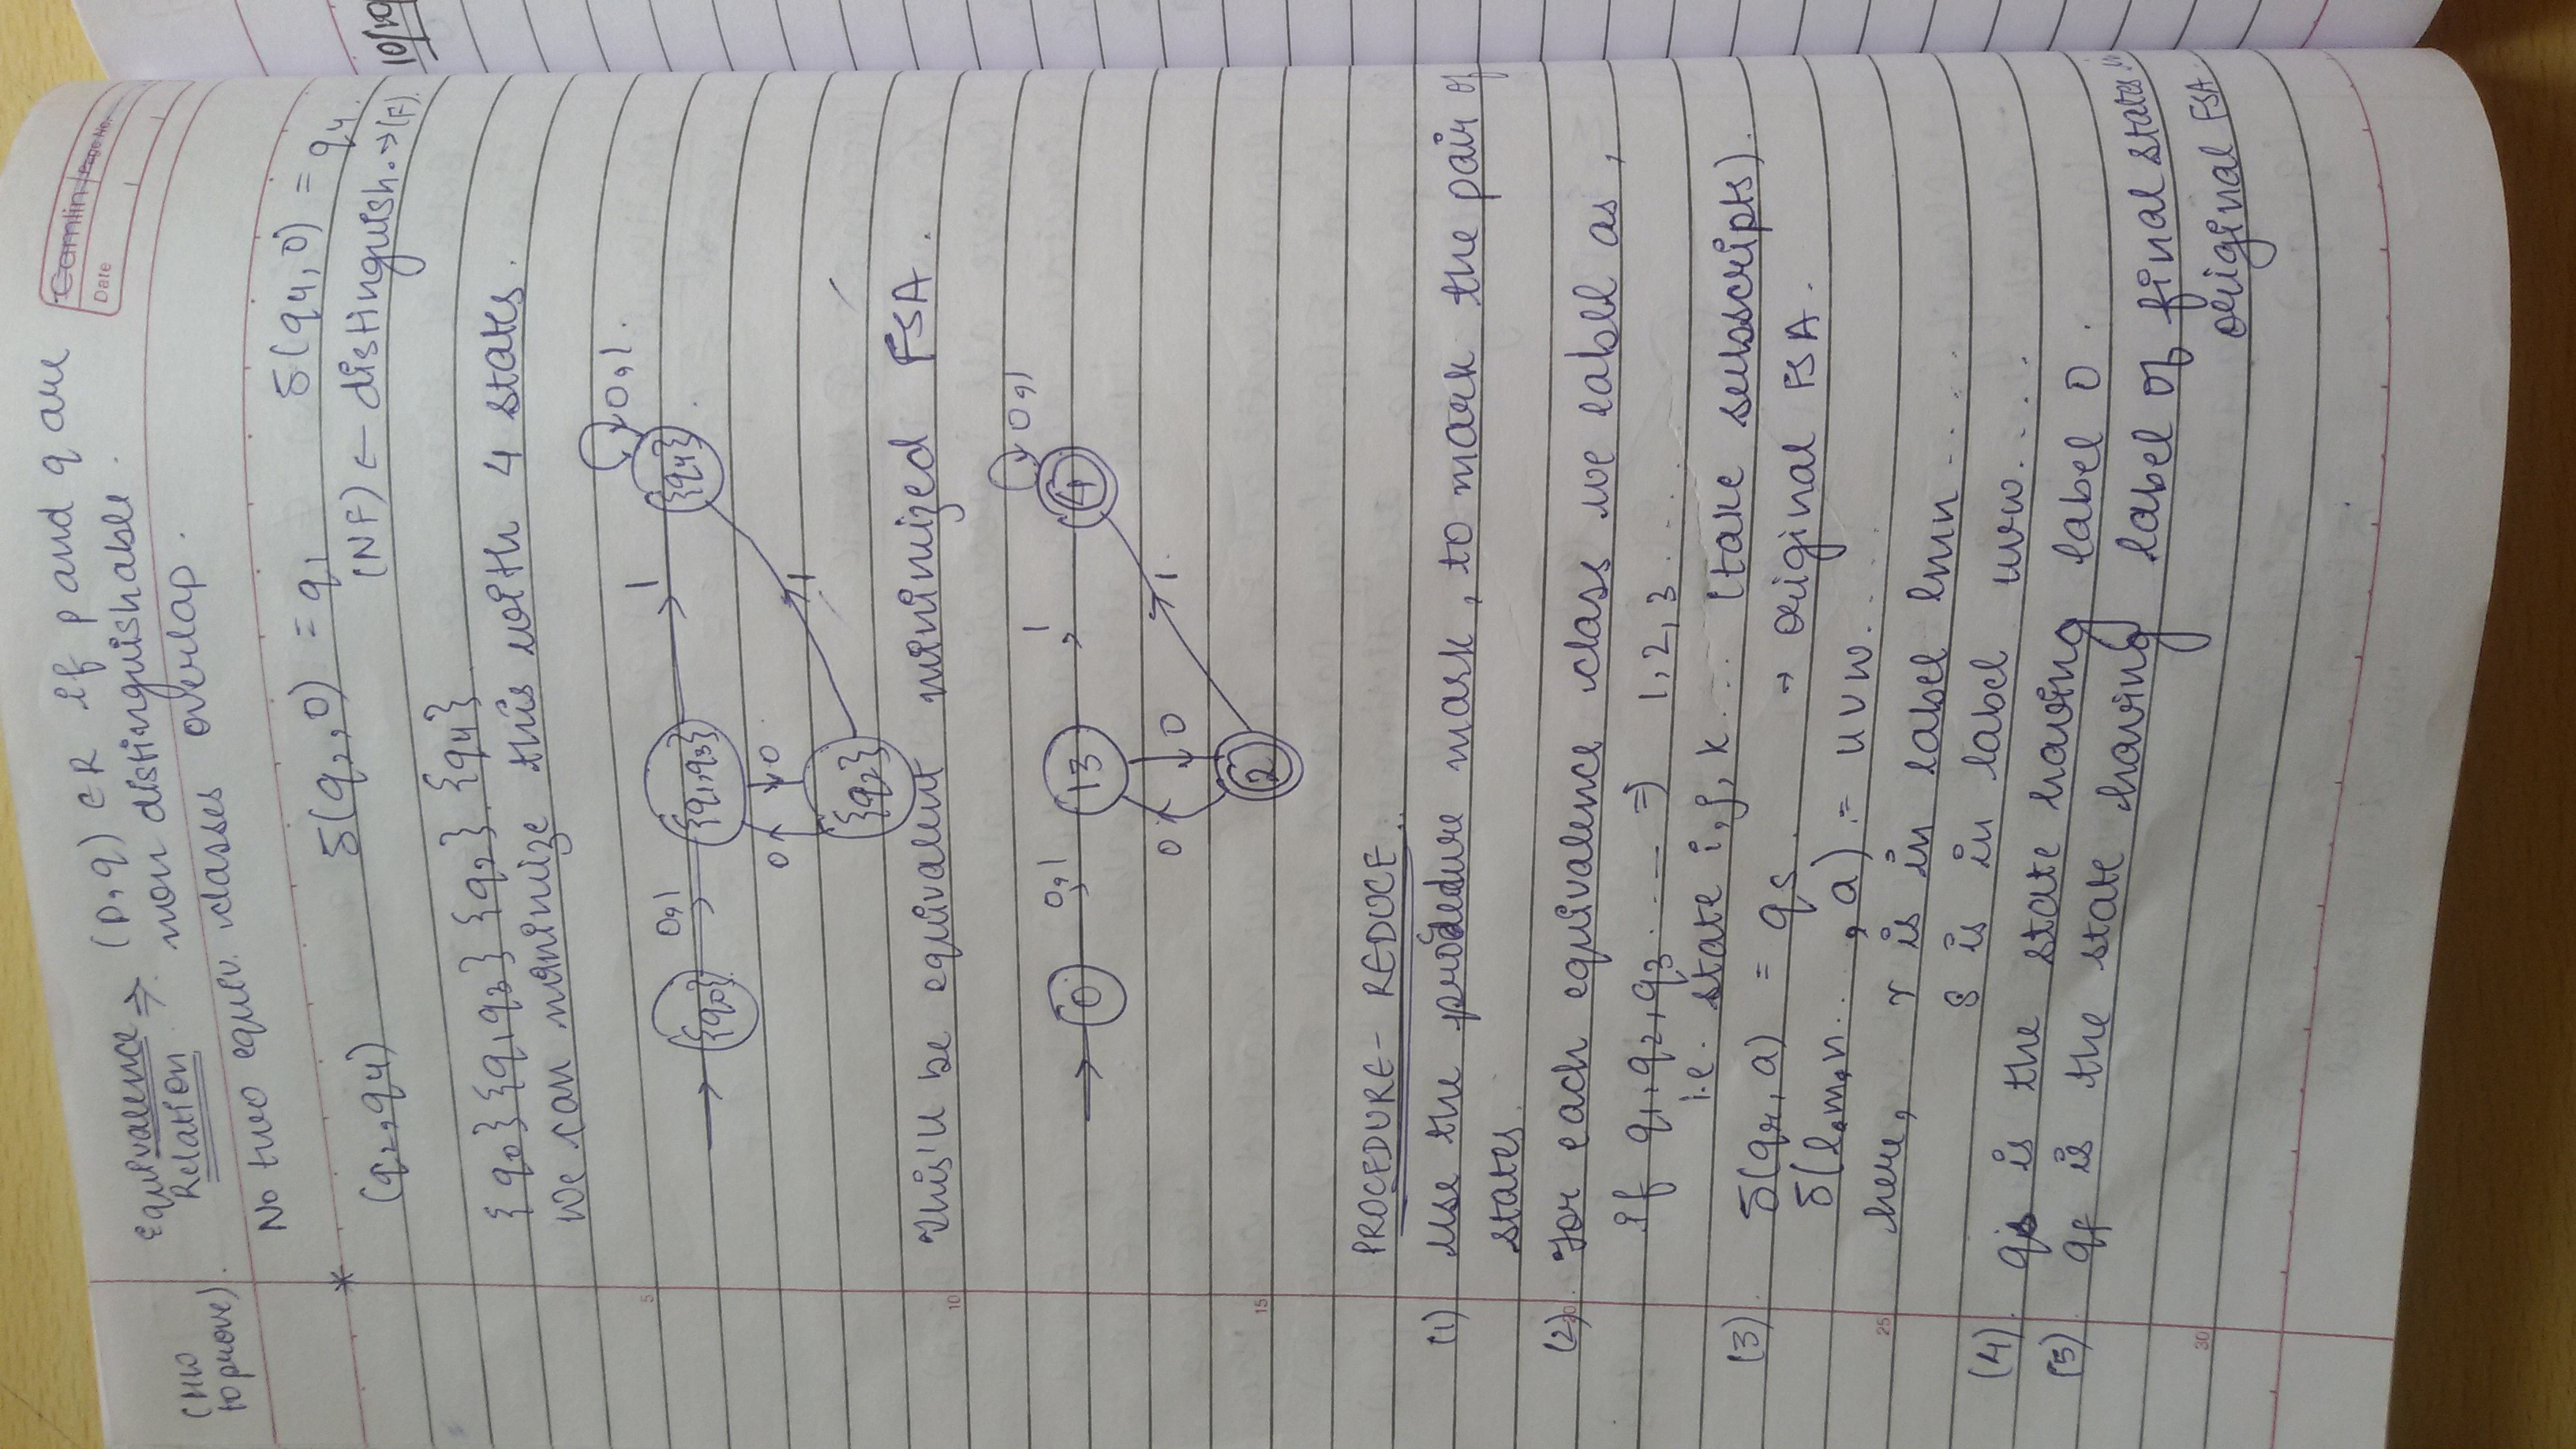 Camlin Page No.
Date
Equivalence ⇒ (p,q) ∈ R if p and q are
Relation non distinguishable.
(HW
to prove).
No two equiv. classes overlap.
* (q2, q4) δ(q2, 0) = q1 δ(q4, 0) = q4.
(NF) ← distinguish. → (F).
10/10
{q0} {q1 q3} {q2}. {q4}
We can minimize this with 4 states.
0,1.
5
{q0} 0,1 {q1,q3} 1 {q4}
0 0
1
{q2}
This'll be equivalent minimized FSA.
10
0,1
0 0,1 13 1 4
0 0 1.
2
15
PROCEDURE - REDUCE..
(1) Use the procedure mark, to mark the pair of
states.
(2). For each equivalence class we label as,
if q1, q2, q3 ..... ⇒ 1, 2, 3 .....
i.e. state i, j, k... (take subscripts).
(3). δ(qr, a) = qs. → original FSA.
δ(l,m,n..., a) = uvw.....
25
here, r is in label lmn .....
s is in label uvw.....
(4). qs is the state having label 0.
(5) qf is the state having label of final states in
30
original FSA